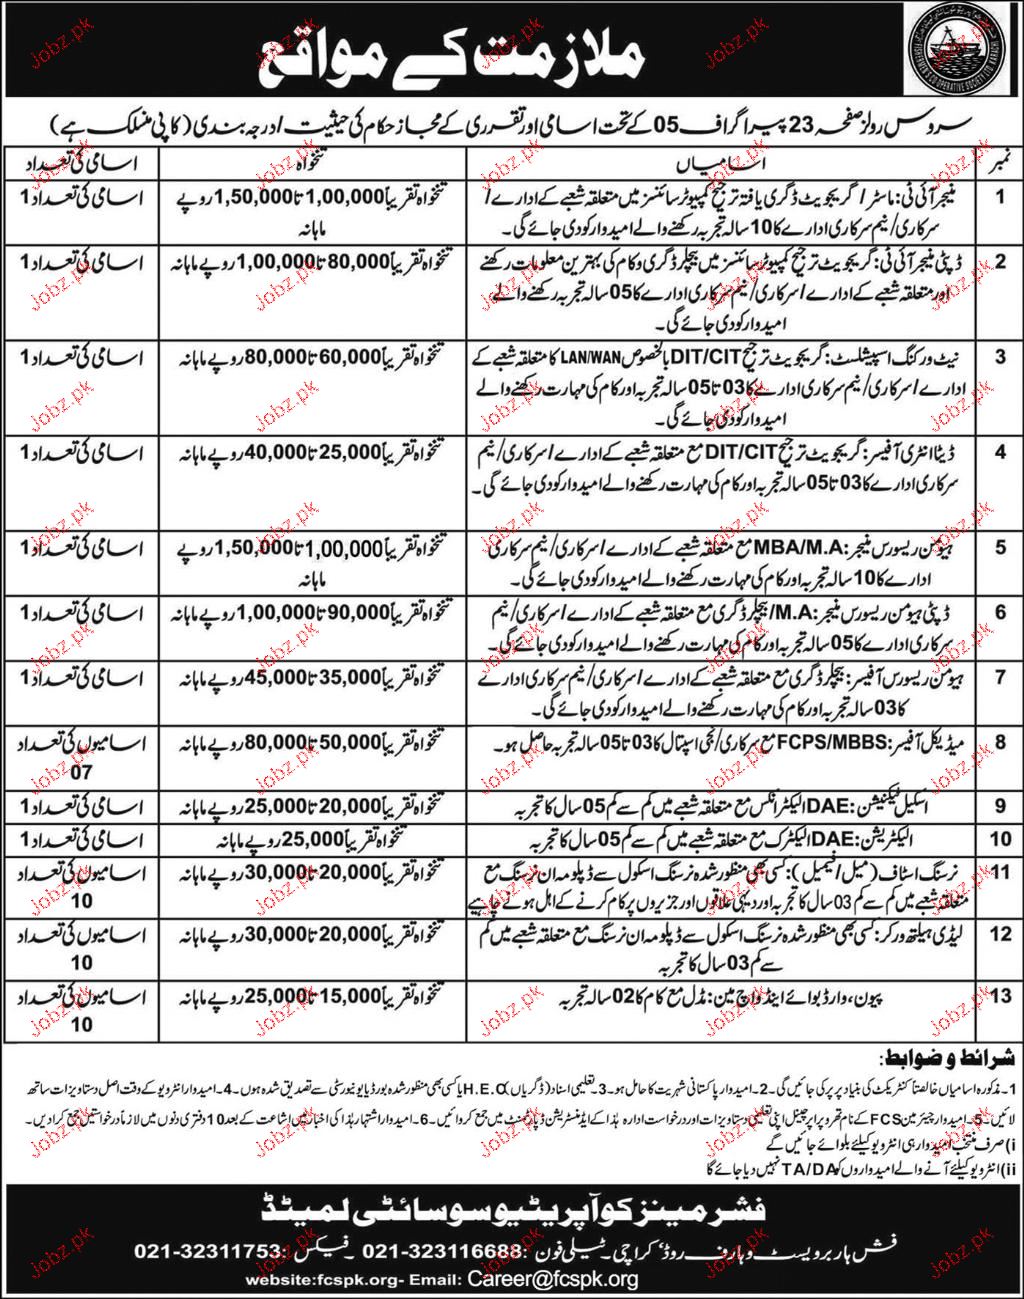 ملازمت کے مواقع
FISHERMEN'S CO-OPERATIVE SOCIETY LTD KARACHI
سروس رولز صفحہ 23 پیراگراف 05 کے تحت اسامی اور تقرری کے مجاز حکام کی حیثیت / درجہ بندی (کاپی منسلک ہے)
نمبر اسامیاں تنخواہ اسامی کی تعداد
1 منیجر آئی ٹی: ماسٹر / گریجویٹ ڈگری یافتہ ترجیح کمپیوٹر سائنسز میں متعلقہ شعبے کے ادارے /
سرکاری / نیم سرکاری ادارے کا 10 سالہ تجربہ رکھنے والے امیدوار کو دی جائے گی۔
تنخواہ تقریباً 1,00,000 تا 1,50,000 روپے
ماہانہ
اسامی کی تعداد 1
2 ڈپٹی منیجر آئی ٹی: گریجویٹ ترجیح کمپیوٹر سائنسز میں بیچلر ڈگری و کام کی بہترین معلومات رکھنے
اور متعلقہ شعبے کے ادارے / سرکاری / نیم سرکاری ادارے کا 05 سالہ تجربہ رکھنے والے
امیدوار کو دی جائے گی۔
تنخواہ تقریباً 80,000 تا 1,00,000 روپے ماہانہ
اسامی کی تعداد 1
3 نیٹ ورکنگ اسپیشلسٹ: گریجویٹ ترجیح DIT/CIT بالخصوص LAN/WAN کا متعلقہ شعبے کے
ادارے / سرکاری / نیم سرکاری ادارے کا 03 تا 05 سالہ تجربہ اور کام کی مہارت رکھنے والے
امیدوار کو دی جائے گی۔
تنخواہ تقریباً 60,000 تا 80,000 روپے ماہانہ
اسامی کی تعداد 1
4 ڈیٹا انٹری آفیسر: گریجویٹ ترجیح DIT/CIT مع متعلقہ شعبے کے ادارے / سرکاری / نیم
سرکاری ادارے کا 03 تا 05 سالہ تجربہ اور کام کی مہارت رکھنے والے امیدوار کو دی جائے گی۔
تنخواہ تقریباً 25,000 تا 40,000 روپے ماہانہ
اسامی کی تعداد 1
5 ہیومن ریسورس منیجر: MBA/M.A مع متعلقہ شعبے کے ادارے / سرکاری / نیم سرکاری
ادارے کا 10 سالہ تجربہ اور کام کی مہارت رکھنے والے امیدوار کو دی جائے گی۔
تنخواہ تقریباً 1,00,000 تا 1,50,000 روپے
ماہانہ
اسامی کی تعداد 1
6 ڈپٹی ہیومن ریسورس منیجر: M.A/ بیچلر ڈگری مع متعلقہ شعبے کے ادارے / سرکاری / نیم
سرکاری ادارے کا 05 سالہ تجربہ اور کام کی مہارت رکھنے والے امیدوار کو دی جائے گی۔
تنخواہ تقریباً 90,000 تا 1,00,000 روپے ماہانہ
اسامی کی تعداد 1
7 ہیومن ریسورس آفیسر: بیچلر ڈگری مع متعلقہ شعبے کے ادارے / سرکاری / نیم سرکاری ادارے
کا 03 سالہ تجربہ اور کام کی مہارت رکھنے والے امیدوار کو دی جائے گی۔
تنخواہ تقریباً 35,000 تا 45,000 روپے ماہانہ
اسامی کی تعداد 1
8 میڈیکل آفیسر: FCPS/MBBS مع سرکاری / نجی اسپتال کا 03 تا 05 سالہ تجربہ حاصل ہو۔
تنخواہ تقریباً 50,000 تا 80,000 روپے ماہانہ
اسامیوں کی تعداد
07
9 اسکیل ٹیکنیشن: DAE الیکٹرانکس مع متعلقہ شعبے میں کم سے کم 05 سال کا تجربہ
تنخواہ تقریباً 20,000 تا 25,000 روپے ماہانہ
اسامی کی تعداد 1
10 الیکٹریشن: DAE الیکٹرک مع متعلقہ شعبے میں کم سے کم 05 سال کا تجربہ
تنخواہ تقریباً 25,000 روپے ماہانہ
اسامی کی تعداد 1
11 نرسنگ اسٹاف (میل / فیمیل): کسی بھی منظور شدہ نرسنگ اسکول سے ڈپلومہ ان نرسنگ مع
متعلقہ شعبے میں کم سے کم 03 سال کا تجربہ اور دیہی علاقوں اور جزیروں پر کام کرنے کے اہل ہونے چاہیے
تنخواہ تقریباً 20,000 تا 30,000 روپے ماہانہ
اسامیوں کی تعداد
10
12 لیڈی ہیلتھ ورکر: کسی بھی منظور شدہ نرسنگ اسکول سے ڈپلومہ ان نرسنگ مع متعلقہ شعبے میں کم
سے کم 03 سال کا تجربہ
تنخواہ تقریباً 20,000 تا 30,000 روپے ماہانہ
اسامیوں کی تعداد
10
13 پیون، وارڈ بوائے اینڈ واچ مین: مڈل مع کام کا 02 سالہ تجربہ
تنخواہ تقریباً 15,000 تا 25,000 روپے ماہانہ
اسامیوں کی تعداد
10
شرائط و ضوابط:
1۔ مذکورہ اسامیاں خالصتاً کنٹریکٹ کی بنیاد پر پر کی جائیں گی۔ 2۔ امیدوار پاکستانی شہریت کا حامل ہو۔ 3۔ تعلیمی اسناد (ڈگریاں) H.E.C یا کسی بھی منظور شدہ بورڈ یا یونیورسٹی سے تصدیق شدہ ہوں۔ 4۔ امیدوار انٹرویو کے وقت اصل دستاویزات ساتھ
لائیں۔ 5۔ امیدوار چیئرمین FCS کے نام تقرری پر اوریجنل اپنی تعلیمی دستاویزات اور درخواست ادارہ ہذا کے ایڈمنسٹریشن ڈپارٹمنٹ میں جمع کروائیں۔ 6۔ امیدوار اشتہار ہذا کی اخبار میں اشاعت کے بعد 10 دفتری دنوں میں لازماً درخواستیں جمع کرادیں۔
i) صرف منتخب امیدوار ہی انٹرویو کیلئے بلوائے جائیں گے
ii) انٹرویو کیلئے آنے والے امیدواروں کو TA/DA نہیں دیا جائے گا
فشرمینز کوآپریٹیو سوسائٹی لمیٹڈ
فش ہاربر ویسٹ وہارف روڈ، کراچی۔ ٹیلی فون: 021-323116688۔ فیکس: 021-32311753
website:fcspk.org- Email: Career@fcspk.org
Jobz.pk